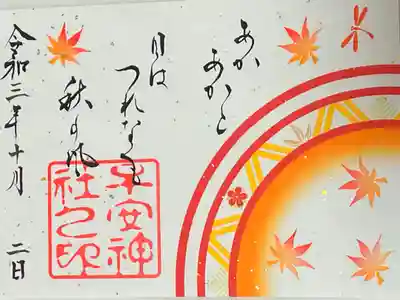 あか
あかと
日は
つれなくも
秋の風
令和三年十月 二日
平安神
社之印